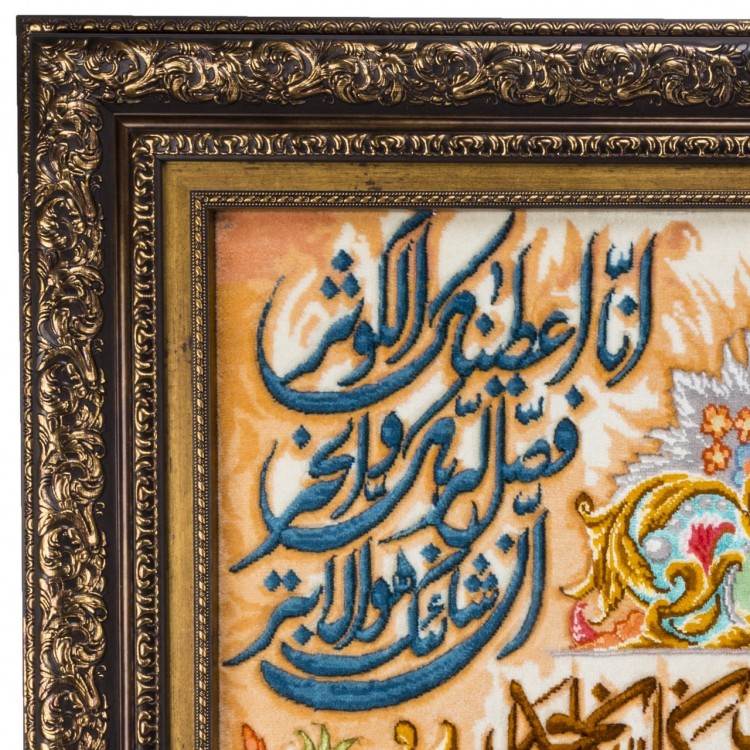 انّا اعطیناک الکوثر
فصّل لربک وانحر
انّ شانئک هوالابتر